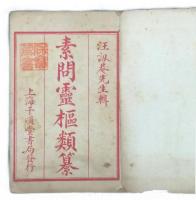 汪訒菴先生輯
素問靈樞類纂
上海千頃堂書局發行